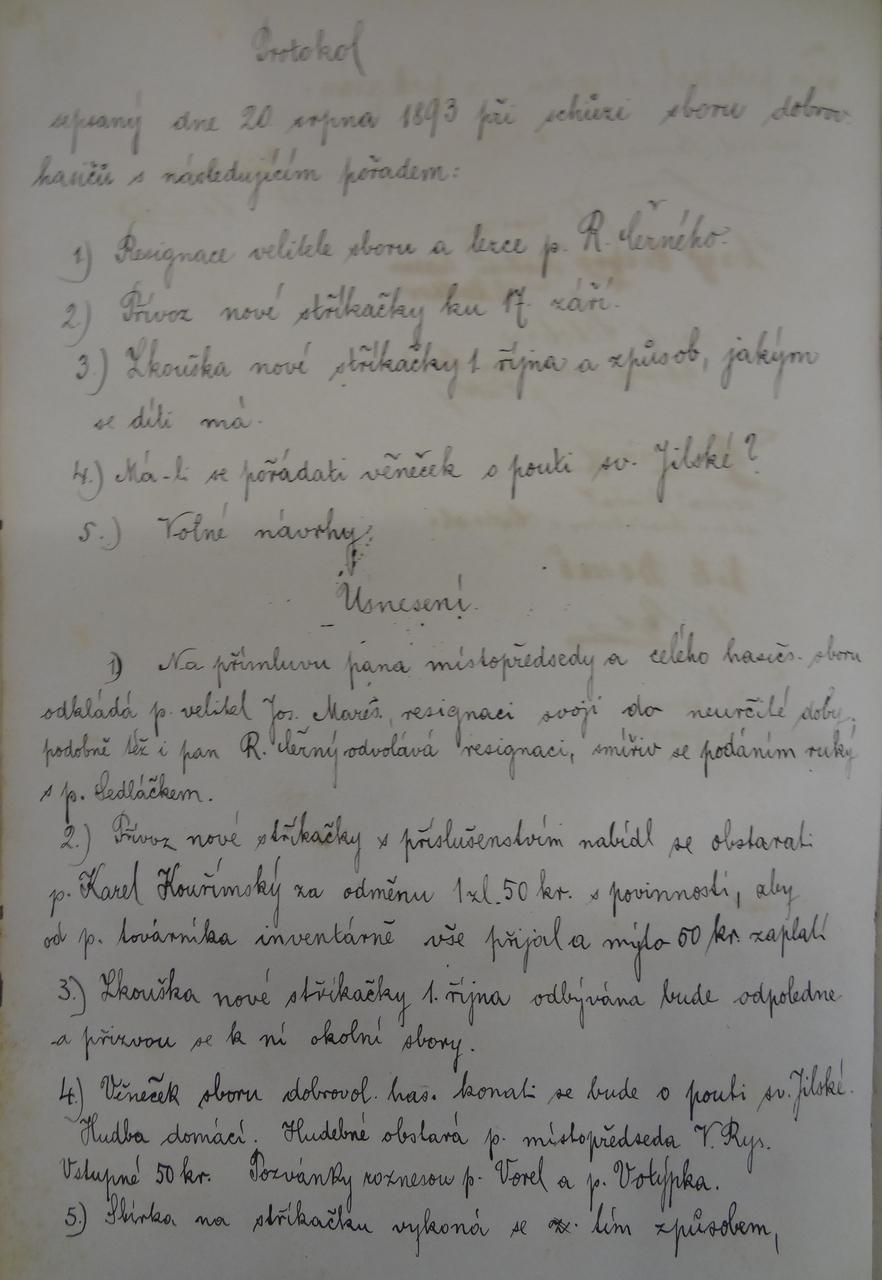 Protokol
sepsaný dne 20 srpna 1893 při schůzi sboru dobrov.
hasičů s následujícím pořadem:
1) Resignace velitele sboru a lezce p. R. Černého.
2) Přívoz nové stříkačky ku 17. září.
3.) Zkouška nové stříkačky 1 října a způsob, jakým
se díti má.
4.) Má-li se pořádati věneček o pouti sv. Jilské?
5.) Volné návrhy.
Usnesení.
1) Na přímluvu pana místopředsedy a celého hasičs. sboru
odkládá p. velitel Jos. Mareš, resignaci svoji do neurčité doby,
podobně též i pan R. Černý odvolává resignaci, smířiv se podáním ruky
s p. Sedláčkem.
2.) Přívoz nové stříkačky s příslušenstvím nabídl se obstarati
p. Karel Kouřimský za odměnu 1 zl. 50 kr. s povinností, aby
od p. továrníka inventárně vše přijal a mýto 50 kr. zaplatí
3.) Zkouška nové stříkačky 1. října odbývána bude odpoledne
a přizvou se k ní okolní sbory.
4.) Věneček sboru dobrovol. has. konati se bude o pouti sv. Jilské.
Hudba domácí. Hudebné obstará p. místopředseda V. Rys.
Vstupné 50 kr. Pozvánky roznesou p. Vorel a p. Votýpka.
5.) Sbírka na stříkačku vykoná se tím způsobem,